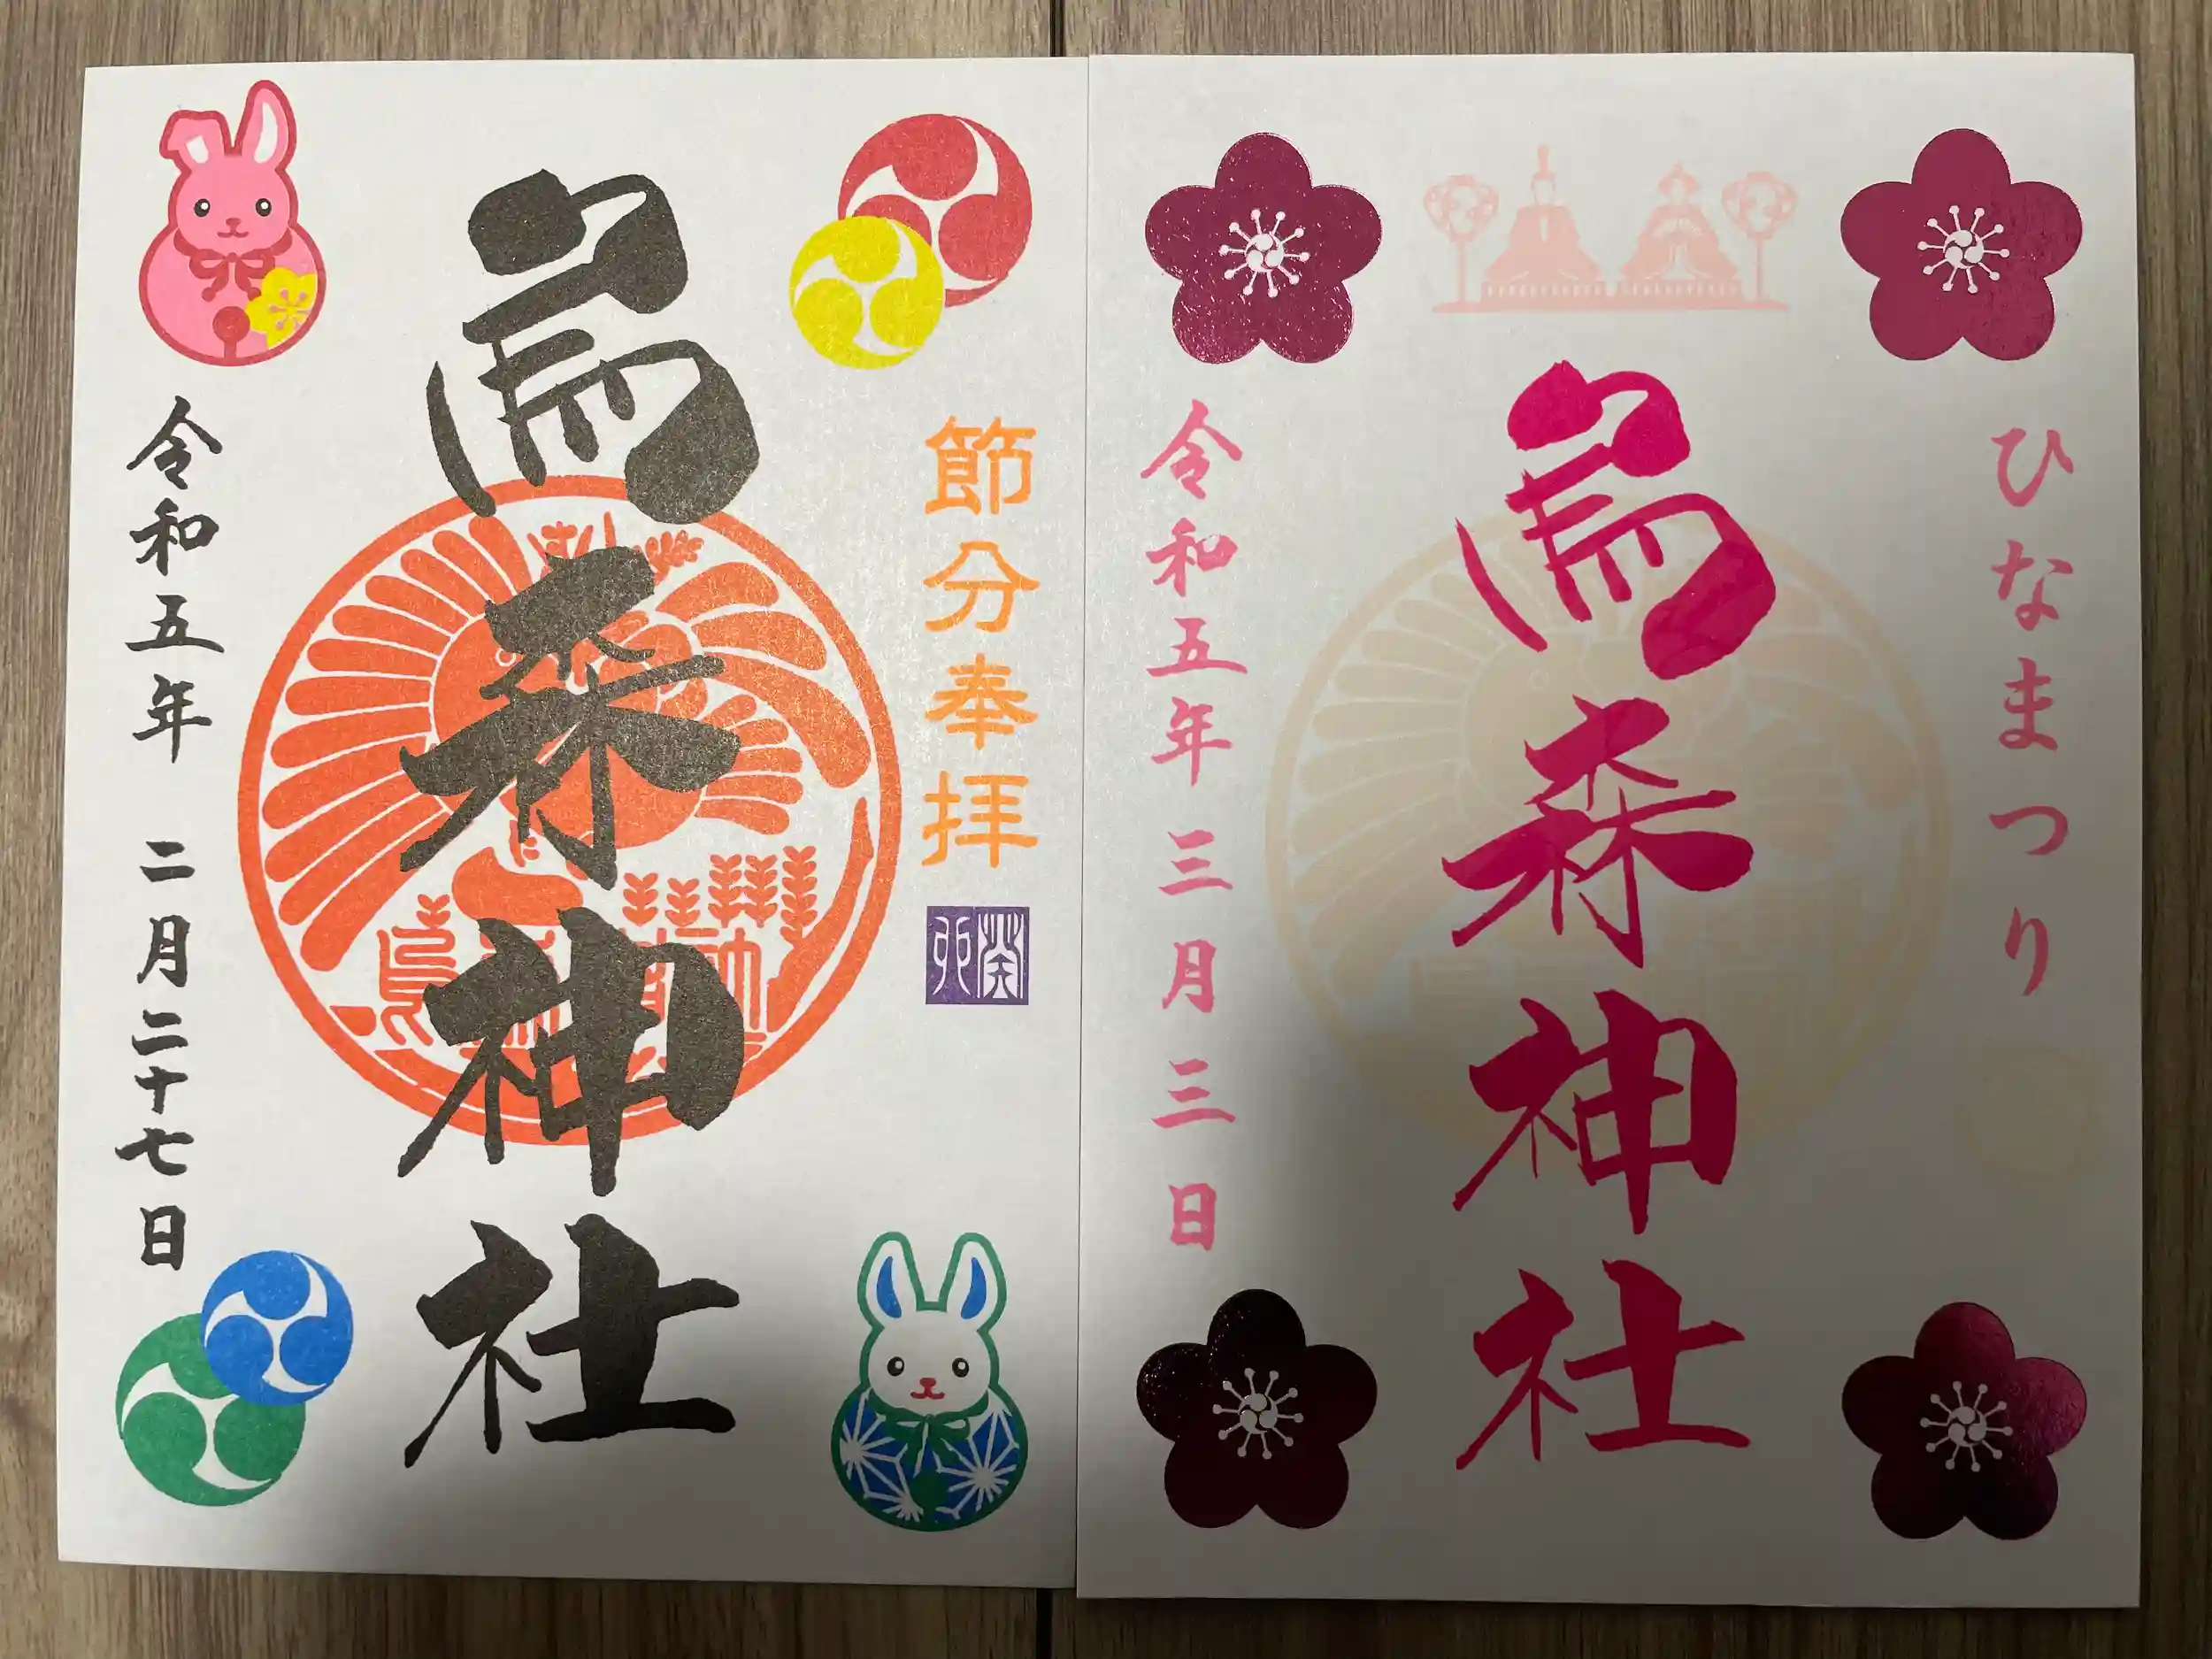 節分奉拝
烏森神社
令和五年 二月二十七日
ひなまつり
烏森神社
令和五年 三月三日